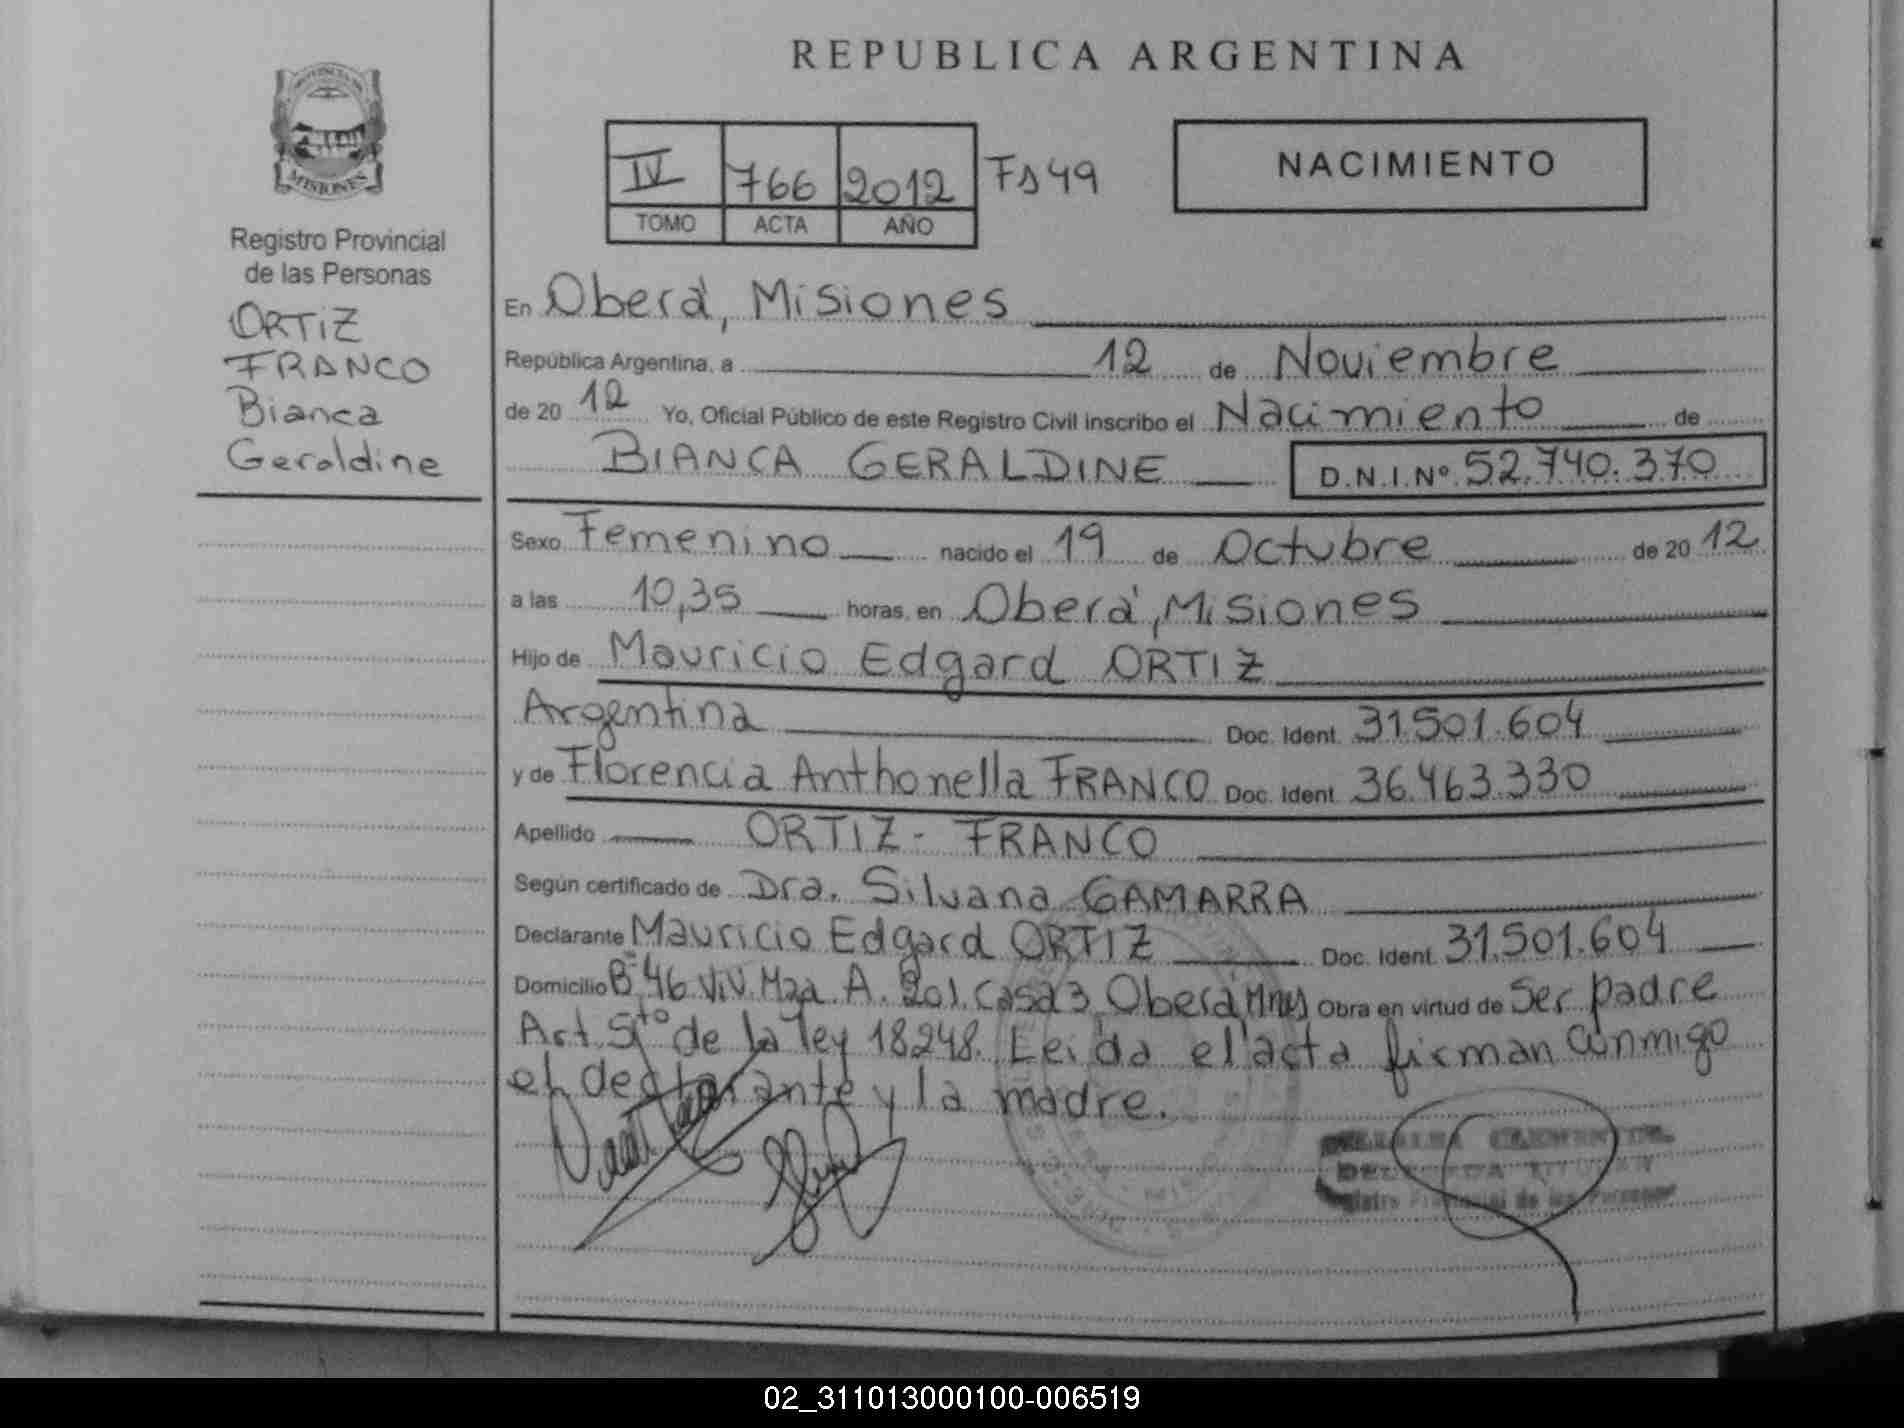 REPUBLICA ARGENTINA
PROVINCIA DE
MISIONES
Registro Provincial
de las Personas
ORTIZ
FRANCO
Bianca
Geraldine
IV 766 2012 Fs 49
TOMO ACTA AÑO
NACIMIENTO
En Oberá, Misiones
República Argentina, a 12 de Noviembre
de 20 12 Yo, Oficial Público de este Registro Civil inscribo el Nacimiento de
BIANCA GERALDINE D.N.I.Nº 52.740.370
Sexo Femenino nacido el 19 de Octubre de 20 12
a las 10,35 horas, en Oberá, Misiones
Hijo de Mauricio Edgard ORTIZ
Argentina Doc. Ident. 31.501.604
y de Florencia Anthonella FRANCO Doc. Ident. 36.463.330
Apellido ORTIZ - FRANCO
Según certificado de Dra. Silvana GAMARRA
Declarante Mauricio Edgard ORTIZ Doc. Ident. 31.501.604
Domicilio Bº 46 Viv. Mza. A. Casa 3 Oberá Mnes Obra en virtud de Ser padre
Art. 5to de la ley 18248. Leída el acta firman conmigo
el declarante y la madre.
Registro Provincial de las Personas
02_311013000100-006519